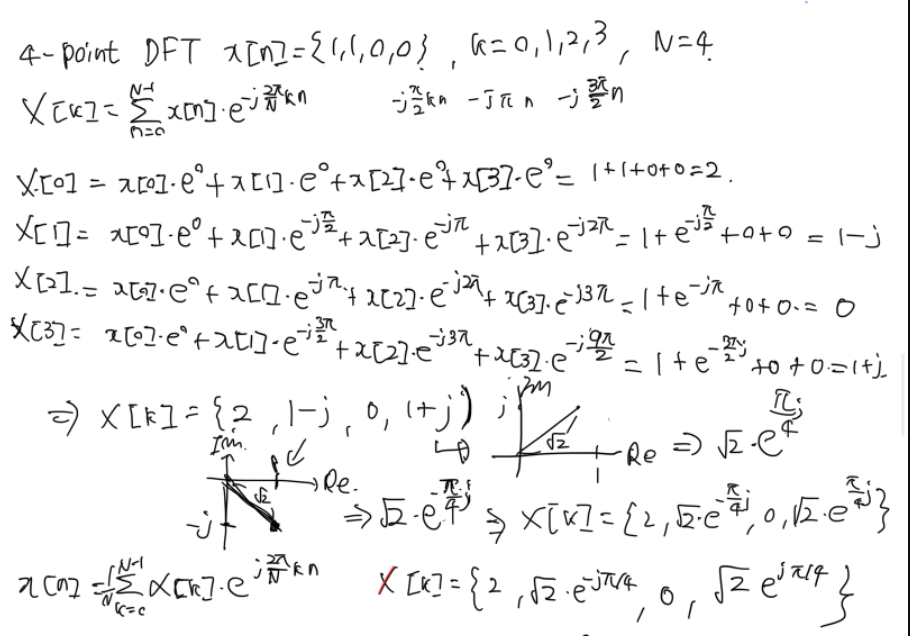 4-point DFT x[n]={1,1,0,0} , k=0,1,2,3 , N=4
X[k]=∑_{n=0}^{N-1} x[n]·e^{-j\frac{2π}{N}kn} -j\frac{π}{2}kn -jπn -j\frac{3π}{2}n
X[0] = x[0]·e^0+x[1]·e^0+x[2]·e^0+x[3]·e^0= 1+1+0+0=2.
X[1]= x[0]·e^0+x[1]·e^{-j\frac{π}{2}}+x[2]·e^{-jπ}+x[3]·e^{-j2π}=1+e^{-j\frac{π}{2}}+0+0 = 1-j
X[2].= x[0]·e^0+x[1]·e^{-jπ}+x[2]·e^{-j2π}+x[3]·e^{-j3π}=1+e^{-jπ}+0+0.= 0
X[3]= x[0]·e^0+x[1]·e^{-j\frac{3π}{2}}+x[2]·e^{-j3π}+x[3]·e^{-j\frac{9π}{2}}=1+e^{-\frac{3π}{2}j}+0+0=1+j
⇒ X[k]={2 , 1-j , 0, 1+j}
j Im √2 1 Re ⇒ √2·e^{\frac{π}{4}j}
Im. √2 Re. -j ⇒ √2·e^{-\frac{π}{4}j} ⇒ X[k]={2,√2·e^{-\frac{π}{4}j},0,√2·e^{\frac{π}{4}j}}
x[n]=\frac{1}{N}∑_{k=0}^{N-1} X[k]·e^{j\frac{2π}{N}kn} X[k]={2 ,√2·e^{-jπ/4} , 0 , √2 e^{jπ/4}}